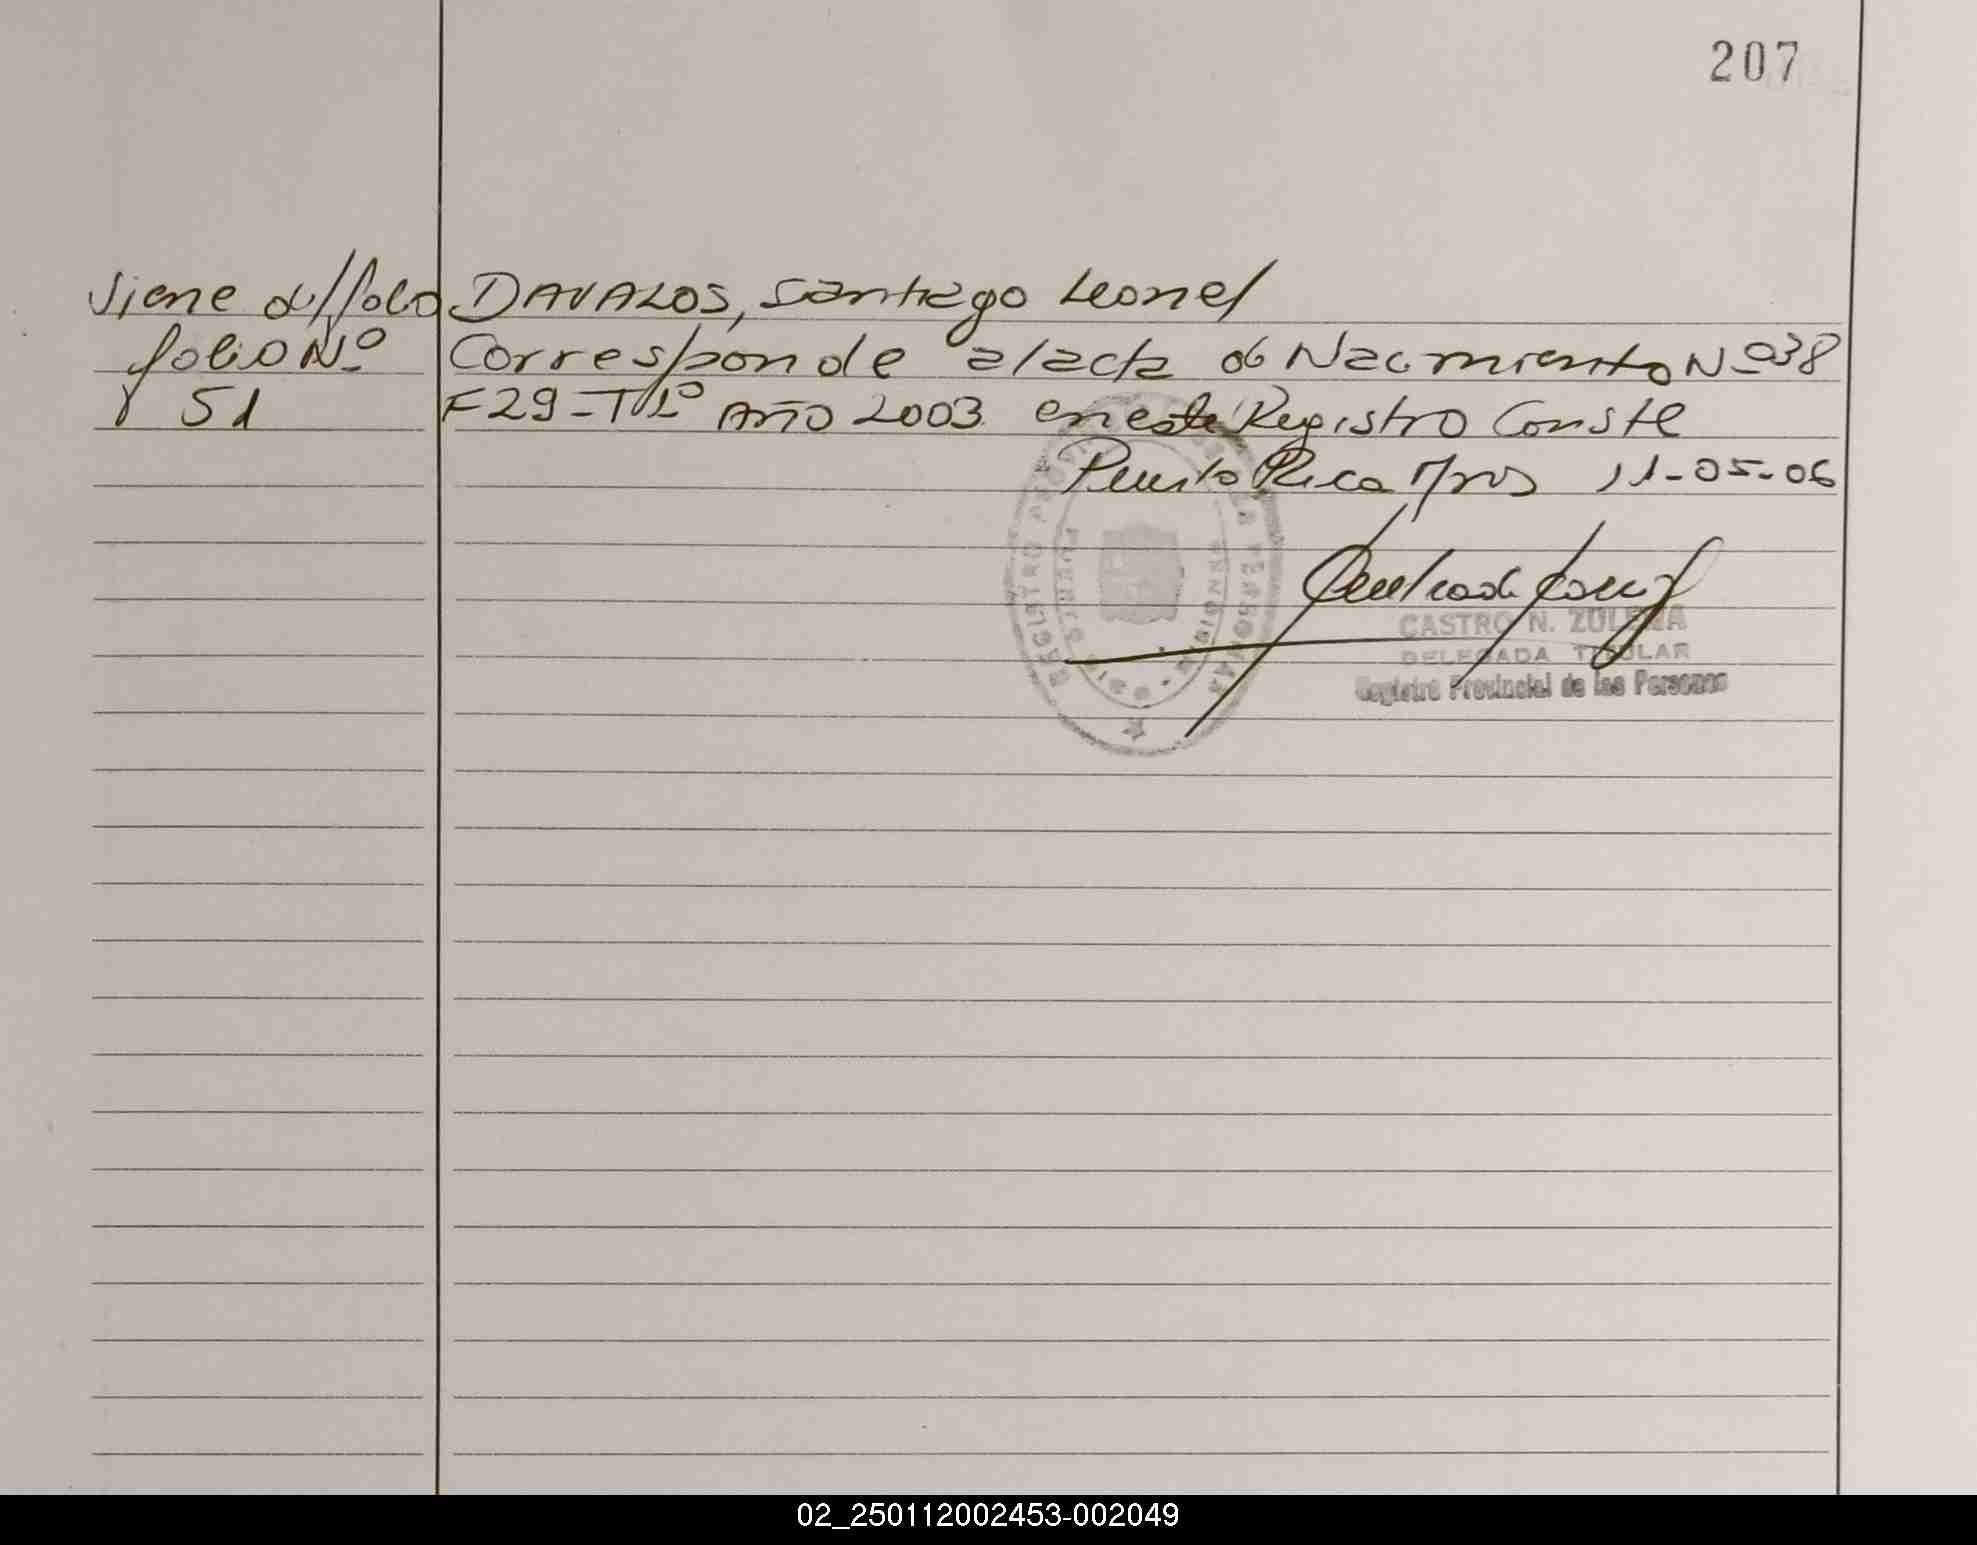 207
Viene d/folio
folio Nº
51
DAVALOS, Santiago Leonel
Corresponde al acta de Nacimiento Nº 038
F29-Tº1º Año 2003 en este Registro Conste
Puerto Rica Mnes 11-05-06
REGISTRO PROVINCIAL DE LAS PERSONAS
PUERTO RICO MISIONES
CASTRO N. ZULEMA
DELEGADA TITULAR
Registro Provincial de las Personas
02_250112002453-002049